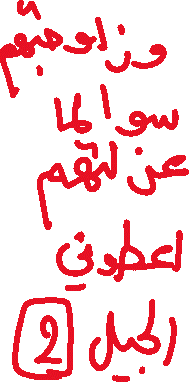 وزاوجبتهم
سوالما
عزلتهم
اعطوني
الجيل 2